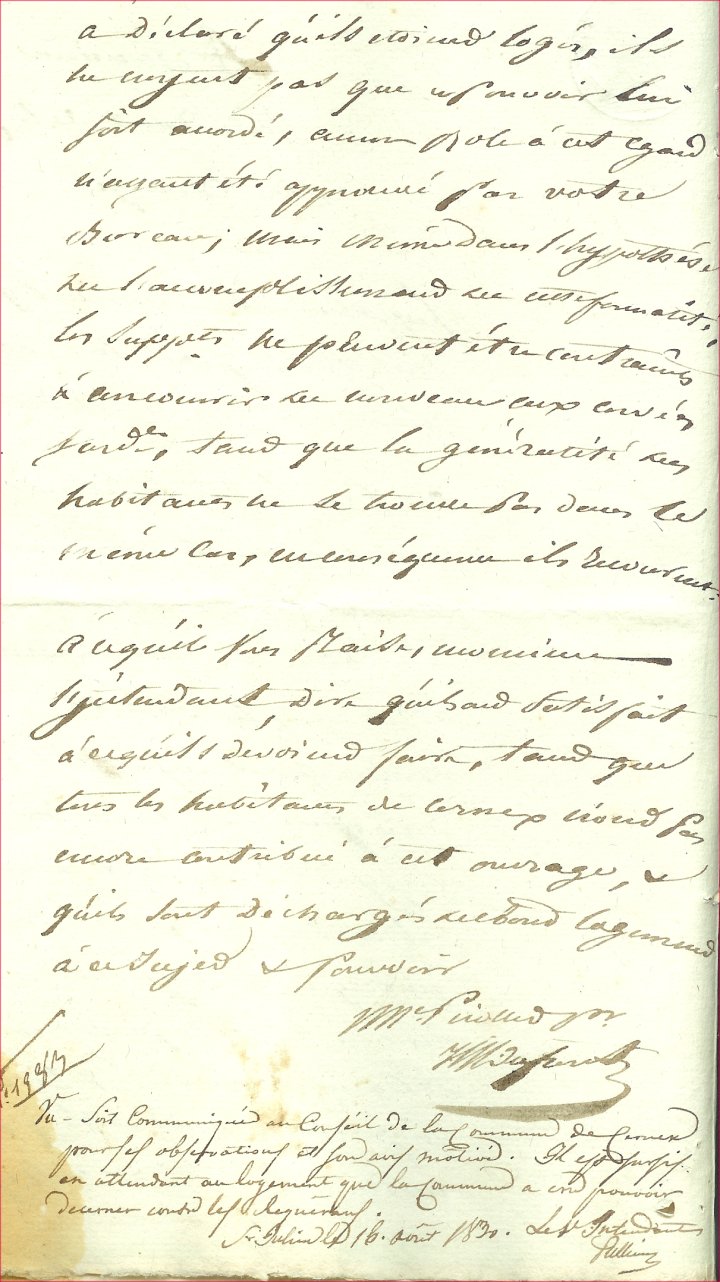 a déclaré qu'ils etoiend logés, ils
ne croyent pas que ce pouvoir lui
soit accordé, aucun Role à cet egard
n'ayant été approuvé par votre
Bureau; mais même dans l'hypothése
de l'accomplissemend de cette formalité,
les Suppts ne peuvent être contraints
à concourir de nouveau aux corvées
susd.es, tand que la généralité des
habitants ne se trouve pas dans le
même Cas, en conséquence ils Recourent
à ce qu'il vous Plaise, monsieur
l'jntendant, Dire qu'ils ond Satisfait
à ce qu'ils dévoiend faire, tand que
tous les habitans de Cernex n'ond pas
encore contribué à cet ouvrage, &
qu'ils sont Déchargés dud. logemend
à ce Sujed & Pourvoir
pr.
Vu - Soit Communiquée au Conseil de la Commune de Cernex
pour ses observations et son avis motivé. Il est sursis
en attendant au logement que la Commune a cru pouvoir
decerner contre les Requérans.
St Julien le 16. août 1830. Le Intendant